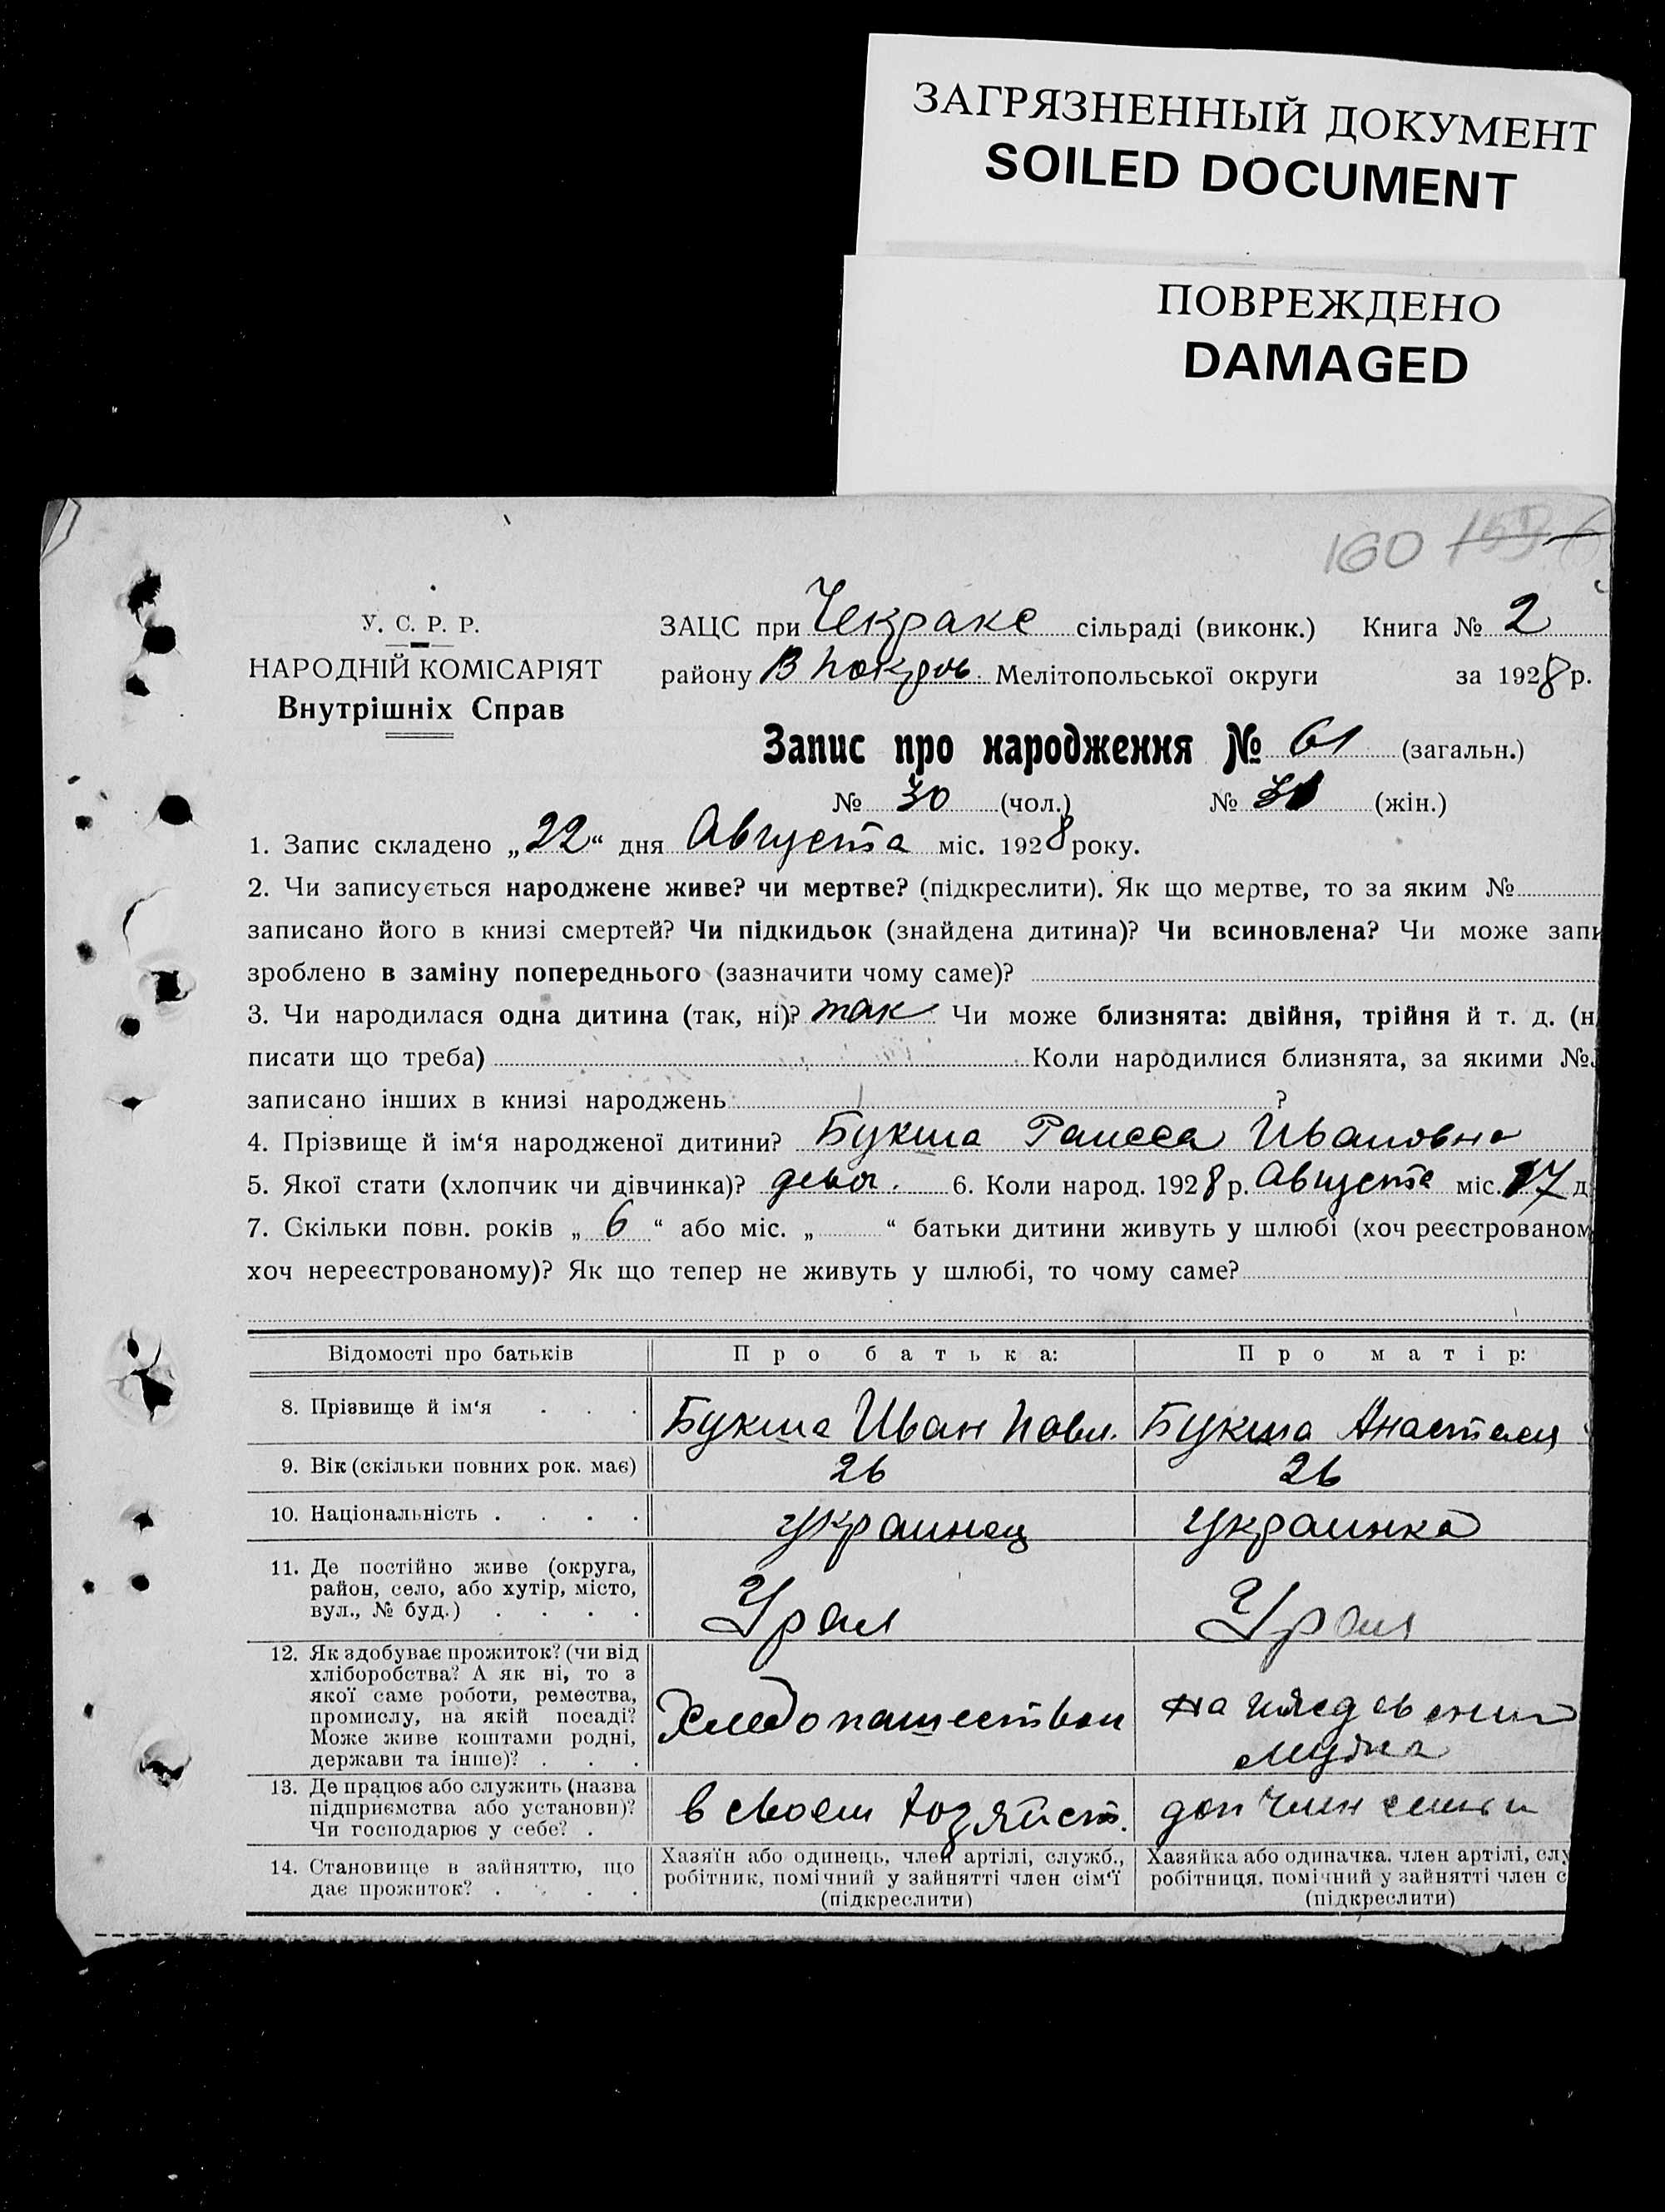 ЗАГРЯЗНЕННЫЙ ДОКУМЕНТ
SOILED DOCUMENT
ПОВРЕЖДЕНО
DAMAGED
160
У. С. Р. Р.
НАРОДНІЙ КОМІСАРІЯТ
Внутрішніх Справ
ЗАЦС при Чекракс сільраді (виконк.) Книга № 2
району В Покров. Мелітопольської округи за 1928 р.
Запис про народження № 61 (загальн.)
№ 30 (чол.) № 31 (жін.)
1. Запис складено „22“ дня Августа міс. 1928 року.
2. Чи записується народжене живе? чи мертве? (підкреслити). Як що мертве, то за яким №
записано його в книзі смертей? Чи підкидьок (знайдена дитина)? Чи всиновлена? Чи може запи
зроблено в заміну попереднього (зазначити чому саме)?
3. Чи народилася одна дитина (так, ні)? так Чи може близнята: двійня, трійня й т. д. (н
писати що треба) Коли народилися близнята, за якими №
записано інших в книзі народжень ?
4. Прізвище й ім‘я народженої дитини? Букша Раисса Ивановна
5. Якої стати (хлопчик чи дівчинка)? девоч. 6. Коли народ. 1928 р. Августа міс. 17 д
7. Скільки повн. років „ 6 “ або міс. „ “ батьки дитини живуть у шлюбі (хоч реєстрованом
хоч нереєстрованому)? Як що тепер не живуть у шлюбі, то чому саме?
Відомості про батьків Про батька: Про матір:
8. Прізвище й ім‘я . . . Букша Иван Павл. Букша Анастасия
9. Вік (скільки повних рок. має) 26 26
10. Національність . . . . украинец украинка
11. Де постійно живе (округа,
район, село, або хутір, місто,
вул., № буд.) . . . .
Урал Урал
12. Як здобуває прожиток? (чи від
хліборобства? А як ні, то з
якої саме роботи, ремества,
промислу, на якій посаді?
Може живе коштами родні,
держави та інше)? . . .
Хлебопашеством
на иждевении
мужа
13. Де працює або служить (назва
підприємства або установи)?
Чи господарює у себе? .
в своем хозяйст. доп член семьи
14. Становище в зайняттю, що
дає прожиток? . . . .
Хазяїн або одинець, член артілі, служб.,
робітник, помічний у зайнятті член сім‘ї
(підкреслити)
Хазяйка або одиначка, член артілі, слу
робітниця, помічний у зайнятті член с
(підкреслити)